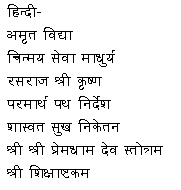 हिन्दी-
अमृत विद्या
चिन्मय सेवा माधुर्य
रसराज श्री कृष्ण
परमार्थ पथ निर्देश
शास्वत सुख निकेतन
श्री श्री प्रेमधाम देव स्तोत्रम
श्री शिक्षाष्टकम